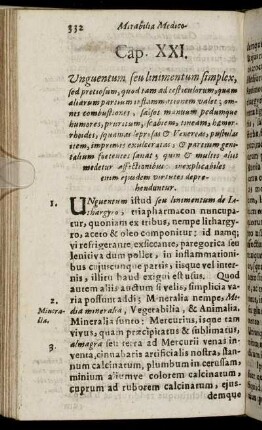 332 Mirabilia Medico-
Cap. XXI.
Unguentum seu linimentum simplex,
sed pretiosum, quod tam ad testiculorum, quam
aliarum partium inflammationem valet; om-
nes combustiones, salsos manuum pedumque
humores, pruritum, scabiem, tineam, hæmor-
rhoides, squamas leprosas & Venereas, pustulas
item, impetines exulceratas, & partium geni-
talium fœtentes sanat; quin & multis aliis
medetur affectionibus: inexplicabiles
enim ejusdem virtutes depre-
henduntur.
1. UNguentum istud seu lenimentum de Li-
thargyro, triapharmacon nuncupa-
tur, quoniam ex tribus, nempe lithargy-
ro, aceto & oleo componitur; id namq;
vi refrigerante, exsiccante, paregorica seu
lenitiva dum pollet, in inflammationi-
bus cujuscunque partis, iisque vel inter-
nis, illitu haud exigui est usus. Quod
autem aliis auctum si velis, simplicia va-
2. ria possunt addi; Mineralia nempe, Me-
Minera- dia mineralia, Vegetabilia, & Animalia.
lia. Mineralia sunto: Mercurius, isque tam
vivus, quam præcipitatus & sublimatus,
3. almagra seu terra ad Mercurii venas in-
venta, cinnabaris artificialis nostra, stan-
num calcinatum, plumbum in cerussam,
minium aliumve colorem calcinatum,
cuprum ad ruborem calcinatum, ejus-
demque